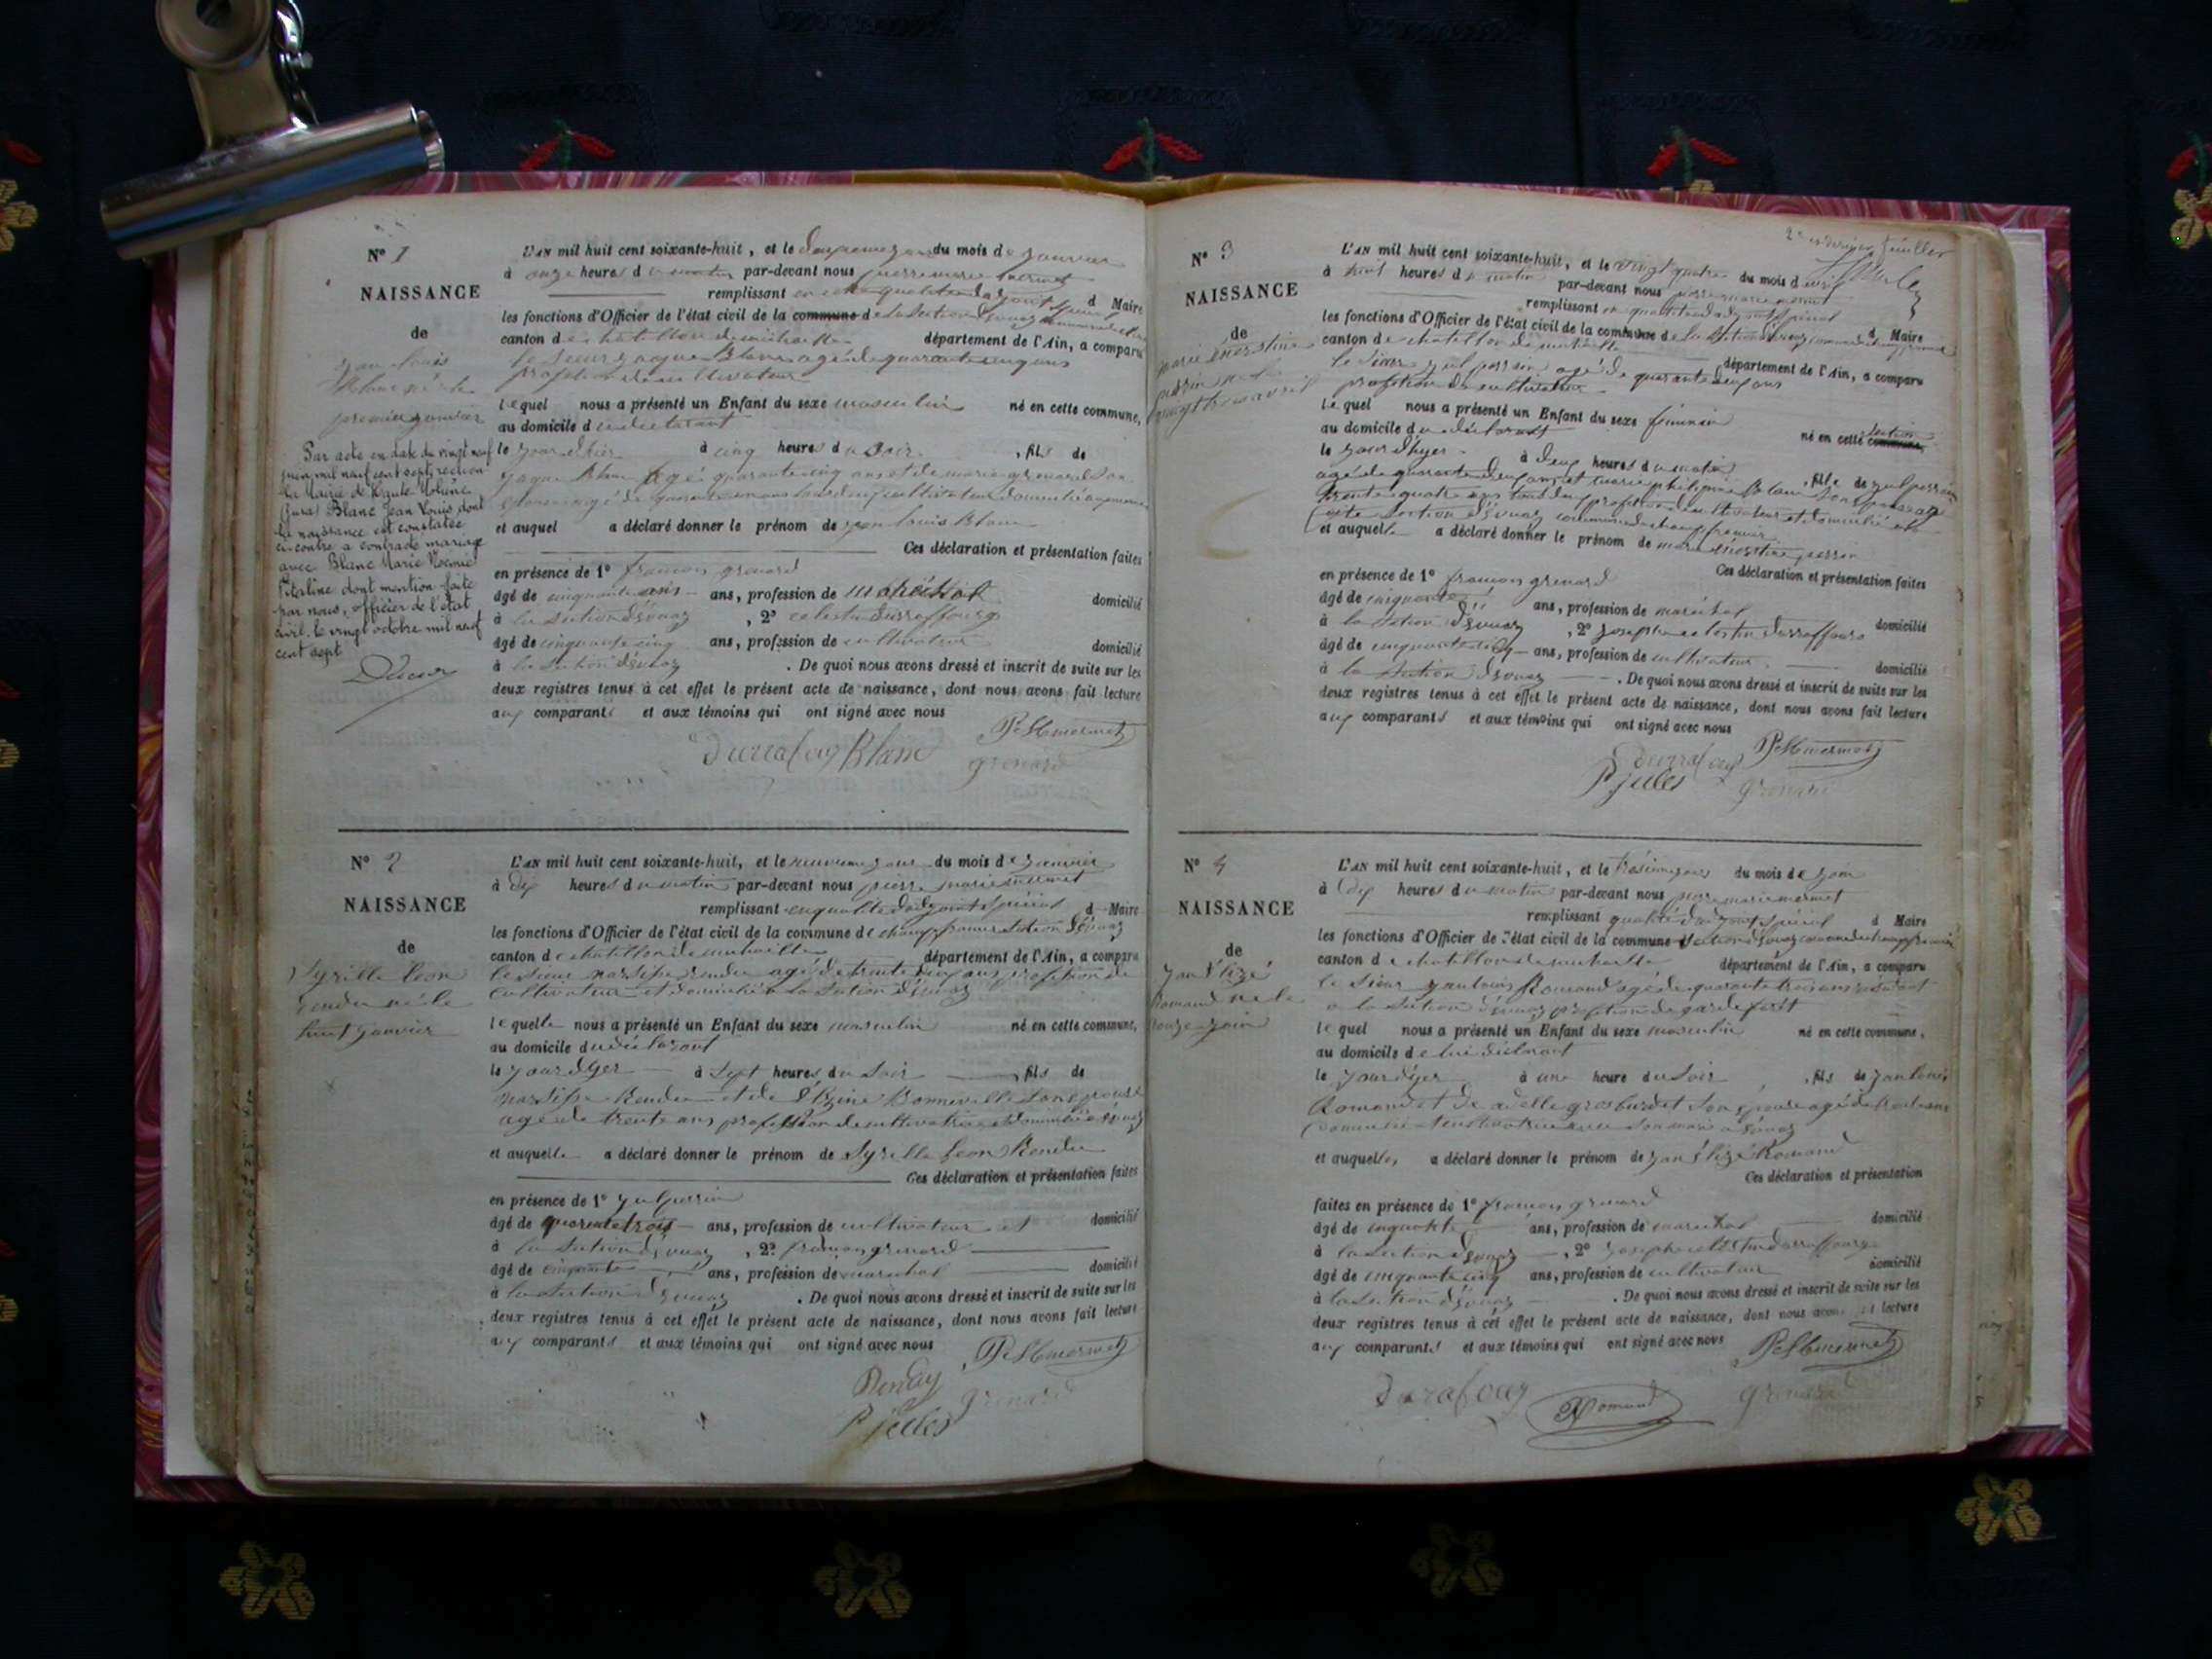 N° 1
NAISSANCE
de
jean louis
Blanc né le
premier janvier
Par acte en date du vingt neuf
juin mil neuf cent sept, reçu en
la Mairie de Haute Molune
(Jura) Blanc Jean Louis dont
la naissance est constatée
ci-contre a contracté mariage
avec Blanc Marie Noémie
Vitaline dont mention faite
par nous, officier de l'état
civil, le vingt octobre mil neuf
cent sept
L'AN mil huit cent soixante-huit, et le deuxieme jour du mois de janvier
à onze heures du matin par-devant nous pierre marie mermet
remplissant en qualité d'adjoint spécial d Maire
les fonctions d'Officier de l'état civil de la commune de la Section d'évuaz
canton de chatillon de michaille département de l'Ain, a comparu
le sieur jaque Blanc agé de quarante cinq ans
profession de cultivateur
lequel nous a présenté un Enfant du sexe masculin né en cette commune,
au domicile du déclarant
le jour d'hier à cinq heures du soir, fils de
jaque Blanc agé quarante cinq ans et de marie grenard son
épouse agé de
et auquel a déclaré donner le prénom de jean louis Blanc
Ces déclaration et présentation faites
en présence de 1° françois grenard
âgé de cinquante ans ans, profession de maréchal domicilié
à la section d'évuaz, 2° celestin durraffourg
âgé de cinquante cinq ans, profession de cultivateur domicilié
à la section d'évuaz. De quoi nous avons dressé et inscrit de suite sur les
deux registres tenus à cet effet le présent acte de naissance, dont nous avons fait lecture
aux comparants et aux témoins qui ont signé avec nous
Blanc
PM mermet
grenard
N° 2
NAISSANCE
de
Syrille leon
rendu né le
huit janvier
L'AN mil huit cent soixante-huit, et le neuvieme jour du mois de janvier
à dix heures du matin par-devant nous pierre marie mermet
remplissant en qualité d'adjoint spécial d Maire
les fonctions d'Officier de l'état civil de la commune de champfromier section d'évuaz
canton de chatillon de michaille département de l'Ain, a comparu
le sieur narsisse rendu agé de trente deux ans profession de
cultivateur et domicilié a la section d'évuaz
lequelle nous a présenté un Enfant du sexe masculin né en cette commune,
au domicile du déclarant
le jour d'yer à sept heures du soir, fils de
narsisse Rendu et de Bonneville son épouse
agé de trente ans profession de cultivatrice et domicilié a évuaz
et auquelle a déclaré donner le prénom de Syrille leon Rendu
Ces déclaration et présentation faites
en présence de 1° jul perrin
âgé de quarante trois ans, profession de cultivateur et domicilié
à la section d'évuaz, 2° françois grenard
âgé de cinquante ans, profession de marechal domicilié
à la section d'évuaz. De quoi nous avons dressé et inscrit de suite sur les
deux registres tenus à cet effet le présent acte de naissance, dont nous avons fait lecture
aux comparants et aux témoins qui ont signé avec nous
PM mermet
Renday
grenard
P jules
2e et dernier feuillet
N° 3
NAISSANCE
de
marie ernestine
perrin né le
vingt trois avril
L'AN mil huit cent soixante-huit, et le vingt quatre du mois d'avril
à huit heures du matin par-devant nous pierre marie mermet
remplissant en qualité d'adjoint spécial d Maire
les fonctions d'Officier de l'état civil de la commune de la section d'évuaz commune de champfromier
canton de chatillon de michaille département de l'Ain, a comparu
le sieur jul perrin agé de quarante deux ans
profession de cultivateur
lequel nous a présenté un Enfant du sexe féminin né en cette commune, section
au domicile du déclarant
le jour d'hyer à deux heures du matin, fille de jul perrin
agé de quarante deux ans et marie philipine Blanc son épouse agé
trente quatre ans tout deux profession de cultivateur et domicilié a la
dite section d'évuaz commune de champfromier
et auquelle a déclaré donner le prénom de marie ernestine perrin
Ces déclaration et présentation faites
en présence de 1° françois grenard
âgé de cinquante ans, profession de maréchal domicilié
à la section d'évuaz, 2° joseph celestin durraffourg
âgé de cinquante cinq ans, profession de cultivateur domicilié
à la section d'évuaz. De quoi nous avons dressé et inscrit de suite sur les
deux registres tenus à cet effet le présent acte de naissance, dont nous avons fait lecture
aux comparants et aux témoins qui ont signé avec nous
PM mermet
P jules
grenard
N° 4
NAISSANCE
de
jan
Romand né le
douze juin
L'AN mil huit cent soixante-huit, et le tresieme jour du mois de juin
à dix heures du matin par-devant nous pierre marie mermet
remplissant qualité d'adjoint spécial d Maire
les fonctions d'Officier de l'état civil de la commune section d'évuaz commune de champfromier
canton de chatillon de michaille département de l'Ain, a comparu
le sieur jan louis Romand agé de quarante trois ans
a la section d'évuaz profession de garde forêt
lequel nous a présenté un Enfant du sexe masculin né en cette commune,
au domicile de lui déclarant
le jour d'yer à une heure du soir, fils de jan louis
Romand et de adelle grosburdet son épouse agé de
avec son mari a évuaz
et auquelle, a déclaré donner le prénom de jan Romand
Ces déclaration et présentation
faites en présence de 1° françois grenard
âgé de cinquante ans, profession de marechal domicilié
à la section d'évuaz, 2° joseph celestin durraffourg
âgé de cinquante cinq ans, profession de cultivateur domicilié
à la section d'évuaz. De quoi nous avons dressé et inscrit de suite sur les
deux registres tenus à cet effet le présent acte de naissance, dont nous avons fait lecture
aux comparants et aux témoins qui ont signé avec nous
PM mermet
Romand
grenard